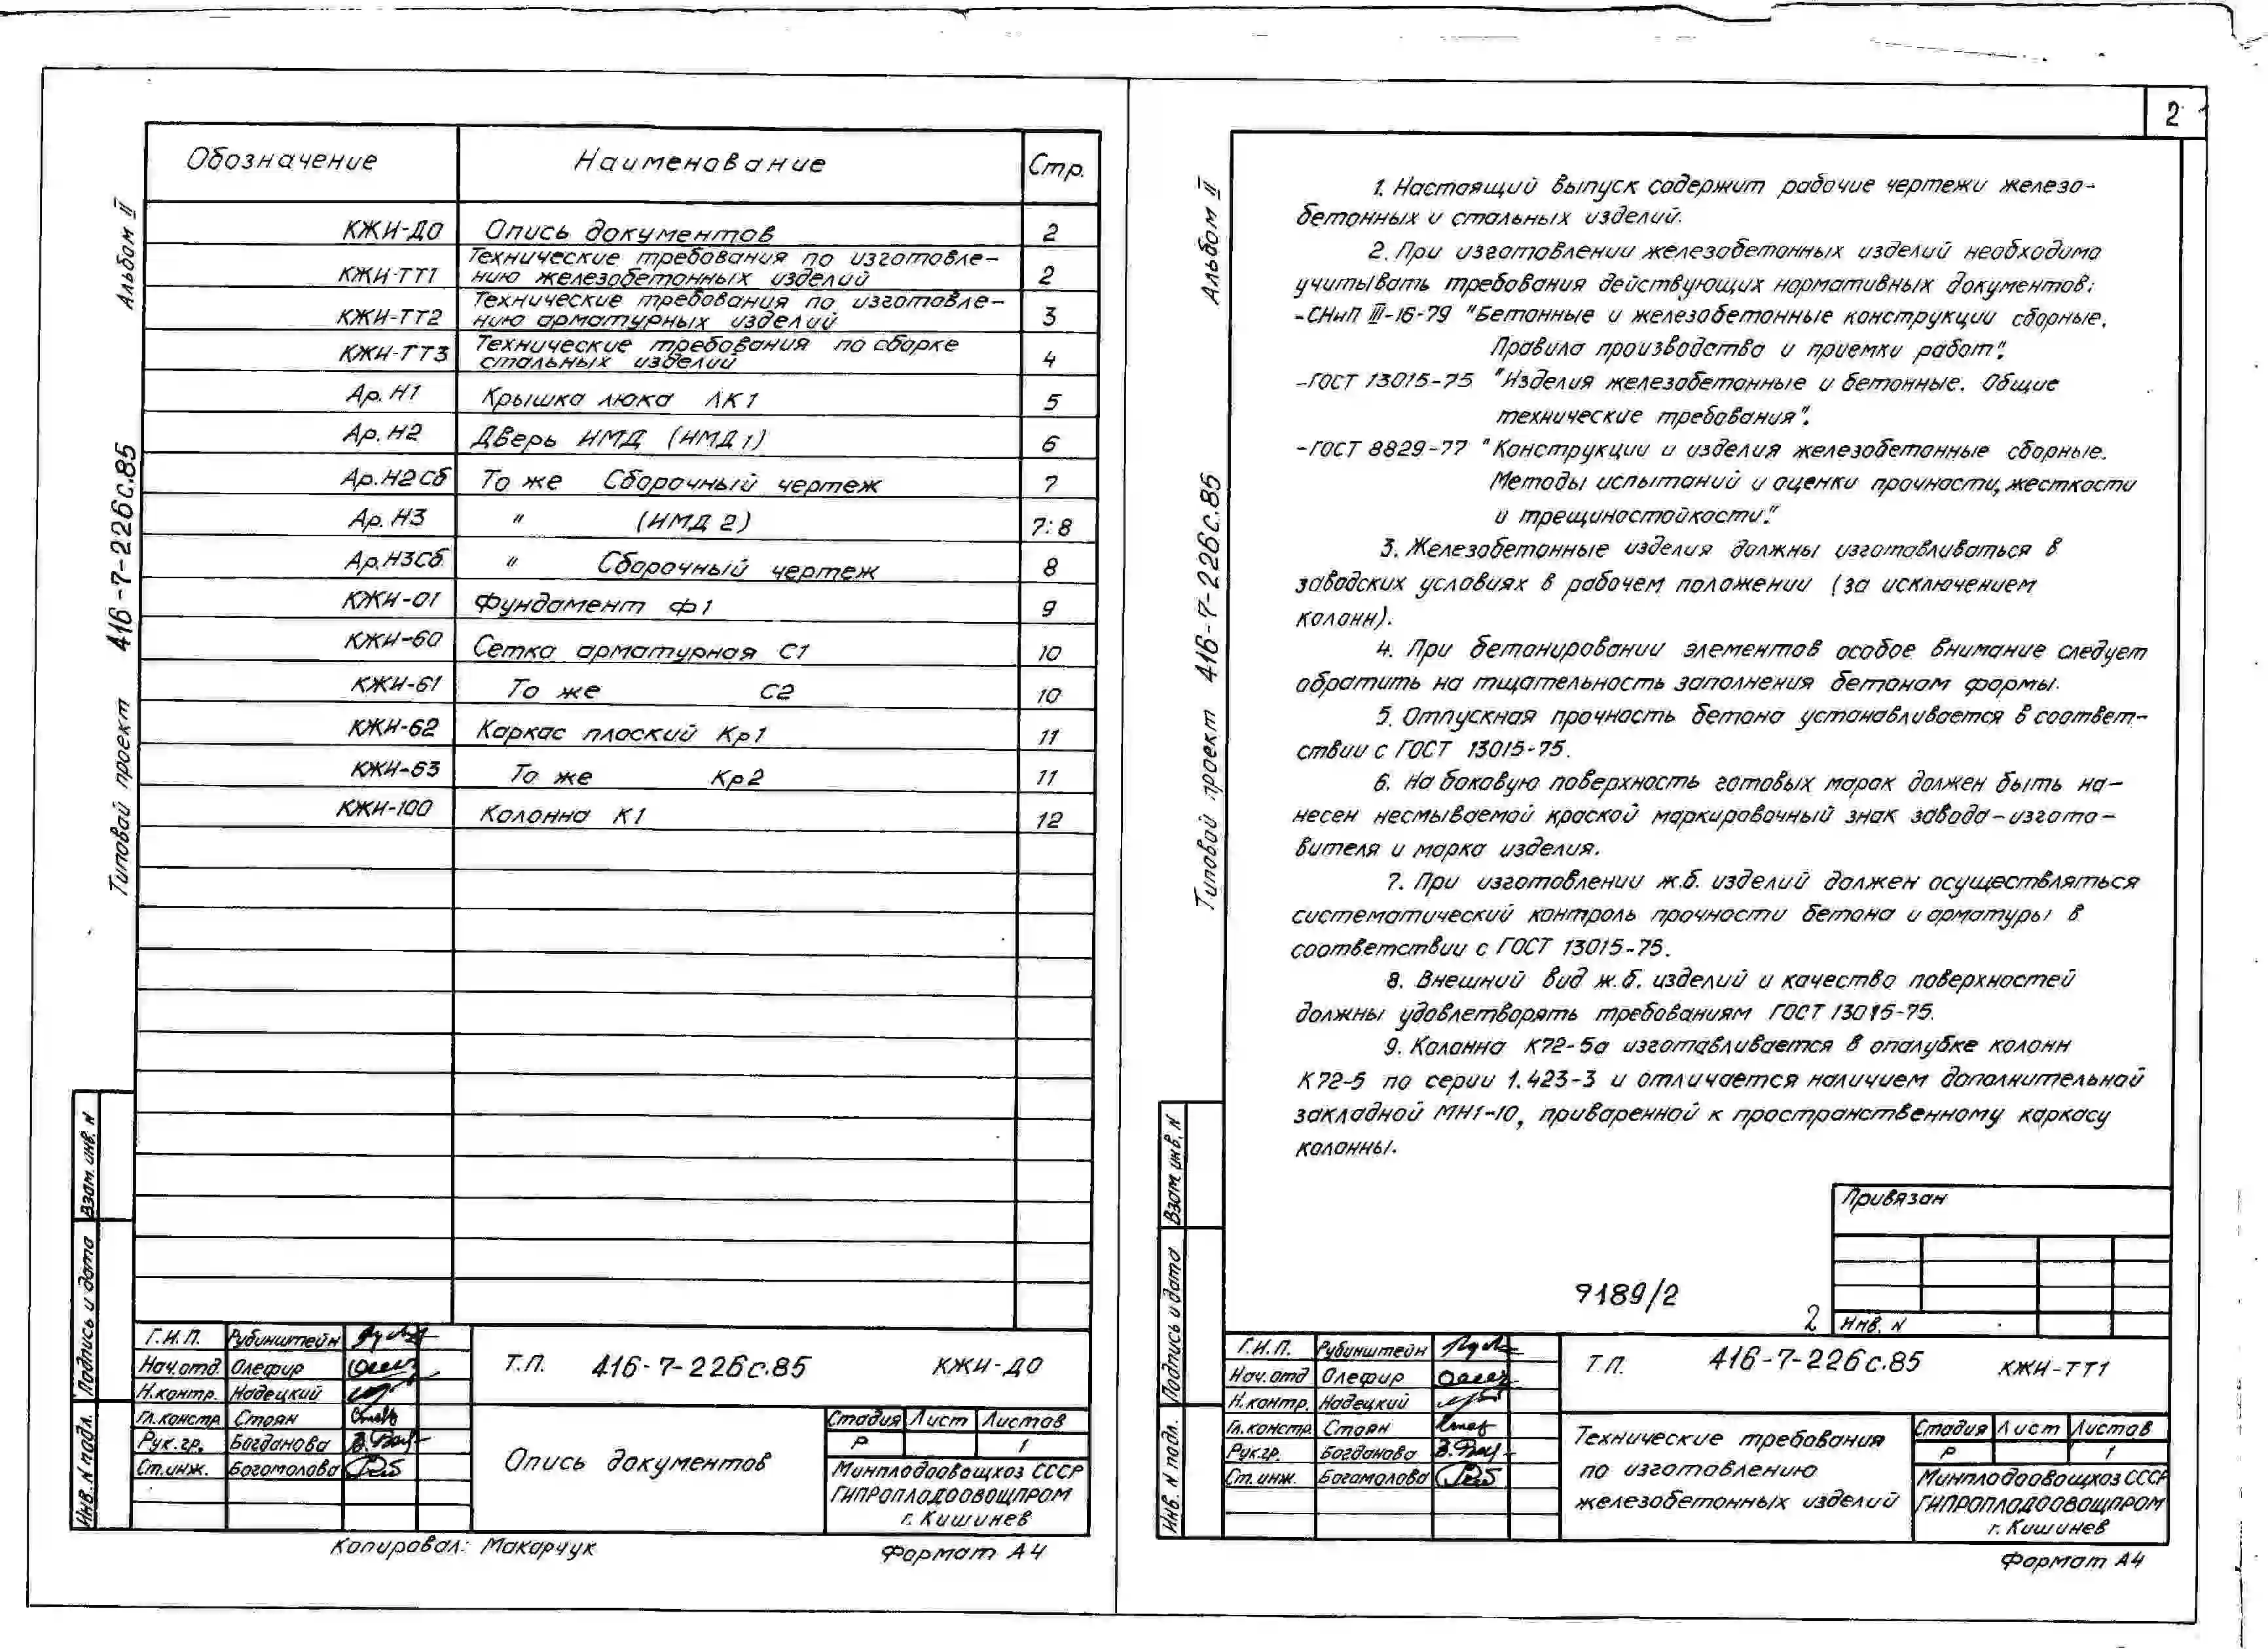 Альбом II
Типовой проект 416-7-226с.85
Обозначение Наименование Стр.
КЖИ-ДО Опись документов 2
Технические требования по изготовле-
КЖИ-ТТ1 нию железобетонных изделий 2
Технические требования по изготовле-
КЖИ-ТТ2 нию арматурных изделий 3
КЖИ-ТТ3 Технические требования по сборке 4
стальных изделий
Ар. И1 Крышка люка ЛК1 5
Ар. И2 Дверь ИМД (ИМД1) 6
Ар.И2Сб То же Сборочный чертеж 7
Ар. И3 " (ИМД 2) 7:8
Ар.И3Сб " Сборочный чертеж 8
КЖИ-01 Фундамент Ф1 9
КЖИ-60 Сетка арматурная С1 10
КЖИ-61 То же С2 10
КЖИ-62 Каркас плоский Кр1 11
КЖИ-63 То же Кр2 11
КЖИ-100 Колонна К1 12
Взам. инв. N
Подпись и дата
Инв. N подл.
Г.И.П. Рубинштейн
Нач.отд Олефир
Н.контр. Надецкий
Гл.констр Стоян
Рук.гр. Богданова
Ст.инж. Богомолова
Т.П. 416-7-226с.85 КЖИ-ДО
Опись документов
Стадия Лист Листов
Р 1
Минплодоовощхоз СССР
ГИПРОПЛОДООВОЩПРОМ
г. Кишинев
Копировал: Макарчук Формат А4
2
Альбом II
Типовой проект 416-7-226с.85
1. Настоящий выпуск содержит рабочие чертежи железо-
бетонных и стальных изделий.
2. При изготовлении железобетонных изделий необходимо
учитывать требования действующих нормативных документов:
-СНиП III-16-79 "Бетонные и железобетонные конструкции сборные.
Правила производства и приемки работ".
-ГОСТ 13015-75 "Изделия железобетонные и бетонные. Общие
технические требования".
-ГОСТ 8829-77 "Конструкции и изделия железобетонные сборные.
Методы испытаний и оценки прочности, жесткости
и трещиностойкости."
3. Железобетонные изделия должны изготавливаться в
заводских условиях в рабочем положении (за исключением
колонн).
4. При бетонировании элементов особое внимание следует
обратить на тщательность заполнения бетоном формы.
5. Отпускная прочность бетона устанавливается в соответ-
ствии с ГОСТ 13015-75.
6. На боковую поверхность готовых марок должен быть на-
несен несмываемой краской маркировочный знак завода-изгото-
вителя и марка изделия.
7. При изготовлении ж.б. изделий должен осуществляться
систематический контроль прочности бетона и арматуры в
соответствии с ГОСТ 13015-75.
8. Внешний вид ж.б. изделий и качество поверхностей
должны удовлетворять требованиям ГОСТ 13015-75.
9. Колонна К72-5а изготавливается в опалубке колонн
К72-5 по серии 1.423-3 и отличается наличием дополнительной
закладной МН1-10, приваренной к пространственному каркасу
колонны.
Привязан
Инв. N
9189/2
2
Взам инв. N
Подпись и дата
Инв. N подл.
Г.И.П. Рубинштейн
Нач.отд Олефир
Н.контр. Надецкий
Гл.констр. Стоян
Рук.гр. Богданова
Ст.инж. Богомолова
Т.П. 416-7-226с.85 КЖИ-ТТ1
Технические требования
по изготовлению
железобетонных изделий
Стадия Лист Листов
Р 1
Минплодоовощхоз СССР
ГИПРОПЛОДООВОЩПРОМ
г. Кишинев
Формат А4